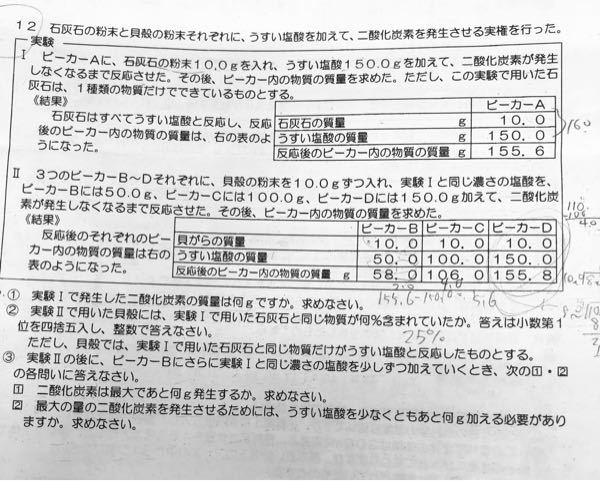 12 石灰石の粉末と貝殻の粉末それぞれに、うすい塩酸を加えて、二酸化炭素を発生させる実権を行った。
実験
Ⅰ ビーカーAに、石灰石の粉末10.0gを入れ、うすい塩酸150.0gを加えて、二酸化炭素が発生
しなくなるまで反応させた。その後、ビーカー内の物質の質量を求めた。ただし、この実験で用いた石
灰石は、1種類の物質だけでできているものとする。
《結果》
石灰石はすべてうすい塩酸と反応し、反応
後のビーカー内の物質の質量は、右の表のよ
うになった。
ビーカーA
石灰石の質量 g 10.0
うすい塩酸の質量 g 150.0
反応後のビーカー内の物質の質量 g 155.6
160
Ⅱ 3つのビーカーB~Dそれぞれに、貝殻の粉末を10.0gずつ入れ、実験Ⅰと同じ濃さの塩酸を、
ビーカーBには50.0g、ビーカーCには100.0g、ビーカーDには150.0g加えて、二酸化炭
素が発生しなくなるまで反応させた。その後、ビーカー内の物質の質量を求めた。
《結果》
反応後のそれぞれのビー
カー内の物質の質量は右の
表のようになった。
ビーカーB ビーカーC ビーカーD
貝がらの質量 g 10.0 10.0 10.0
うすい塩酸の質量 g 50.0 100.0 150.0
反応後のビーカー内の物質の質量 g 58.0 106.0 155.8
2.0 4.0
155.6-150.0=5.6
① 実験Ⅰで発生した二酸化炭素の質量は何gですか。求めなさい。
② 実験Ⅱで用いた貝殻には、実験Ⅰで用いた石灰石と同じ物質が何%含まれていたか。答えは小数第1
位を四捨五入し、整数で答えなさい。
25%
ただし、貝殻では、実験Ⅰで用いた石灰石と同じ物質だけがうすい塩酸と反応したものとする。
③ 実験Ⅱの後に、ビーカーBにさらに実験Ⅰと同じ濃さの塩酸を少しずつ加えていくとき、次の1・2
の各問いに答えなさい。
1 二酸化炭素は最大であと何g発生するか。求めなさい。
2 最大の量の二酸化炭素を発生させるためには、うすい塩酸を少なくともあと何g加える必要があり
ますか。求めなさい。